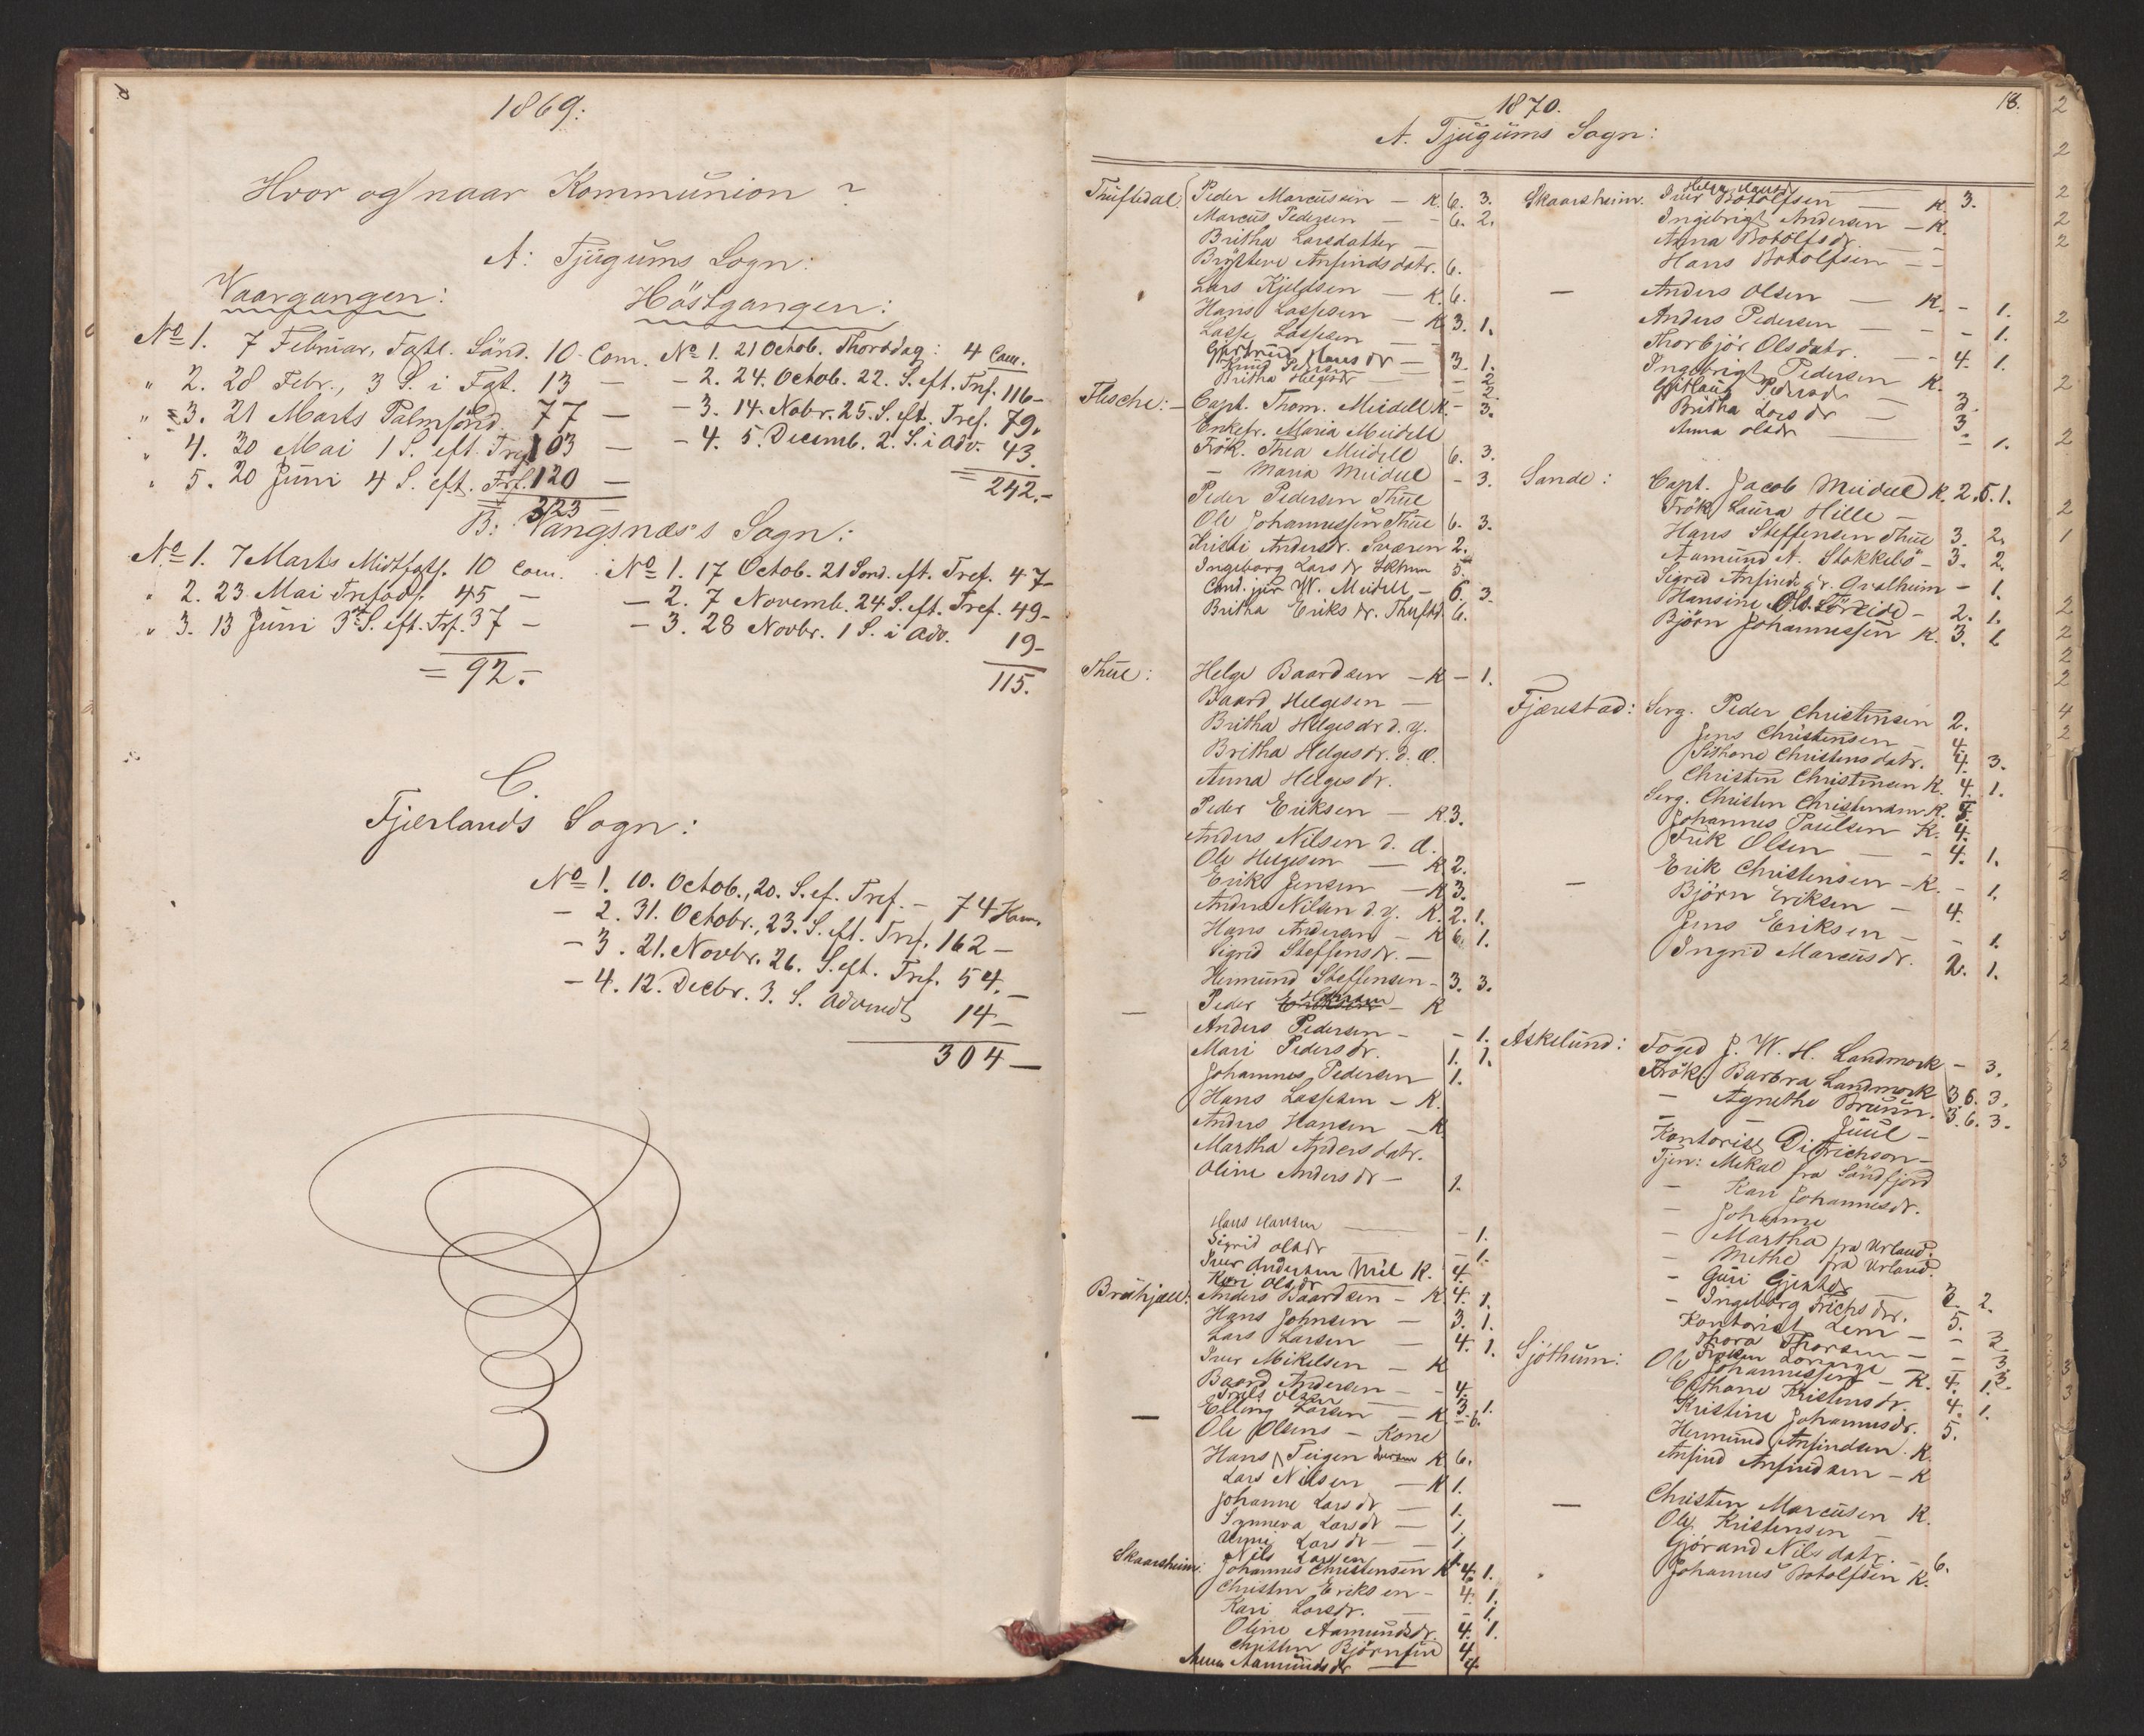 1869:
Hvor og naar Kommunion?
A: Tjugums Sogn:
Vaargangen:
No 1. 7 Februar, Fastl. Sönd. 10 Com.
" 2. 28 Febr., 3 S. i Fst. 13 —
" 3. 21 Marts Palmsönd. 77 —
" 4. 30 Mai 1 S. eft. Tref. 103 —
" 5. 20 Juni 4 S. eft. Tref. 120 —
323
Höstgangen:
No 1. 21 Octob. Thorsdag: 4 Com.
- 2. 24. Octob. 22. S. eft. Tref. 116 -
- 3. 14. Nobr. 25. S. eft. Tref. 79.
- 4. 5. Decemb. 2. S. i Adv. 43.
= 242.-
B: Vangsnæs's Sogn:
No 1. 7 Marts Midtfast. 10 Com.
" 2. 23. Mai 45 -
" 3. 13 Juni 3die S. eft. Tref. 37 -
= 92.-
No 1. 17 Octob. 21 Sönd. eft. Tref. 47 -
- 2. 7 Novemb. 24 S. eft. Tref. 49 -
- 3. 28 Novbr. 1 S. i Adv. 19 -
115.
C.
Fjærlands Sogn:
No 1. 10. Octob., 20. S. ef. Tref. - 74 Kom.
- 2. 31. Octobr., 23. S. eft. Tref. 162 -
- 3. 21. Novbr. 26. S. eft. Tref. 54. -
- 4. 12. Decbr. 3. S. Advendt 14 -
304 -
1870.
18.
A. Tjugums Sogn:
Thuftedal. Peder Marcussen - K. 6. 3.
Marcus Pedersen - - 6. 2.
Britha Larsdatter -
Brytteve Anfindsdatr. 6.
Lars Kjeldsen - K. 6.
Hans Lassesen - K 3. 1.
Lasse Lassesen - -
Gjertrud Hansdr - 3. 1.
Knud Pedersen - 2
Britha Helgesdr - 2.
Flesche: - Capt. Thom. Meidell K. - 3.
Enkefr. Maria Meidell
Frök. Thea Meidell 6. 3.
- Maria Meidell - 3.
Peder Pedersen Thue
Ole Johannessen Thue 6. 3.
Kristi Andersdr. Sværen 2.
Ingeborg Larsdr 5
Cand. jur W. Meidell - 6. 3.
Britha Eriksdr. Thuftd. 6.
Thue: Helge Baardsen - K - 1.
Baard Helgesen -
Britha Helgesdr d. y.
Britha Helgesdr. d. Æ.
Anna Helgesdr.
Peder Eriksen - K. 3.
Anders Nilsen d. Æ.
Ole Helgesen - K 2.
Erik Jensen - K 3.
Anders Nilsen d. y. K. 2. 1.
Hans Andersen - K 6. 1.
Sigrid Steffensdr. -
Hermund Steffensen - 3. 3.
- Peder - K
Anders Pedersen - - 1.
Mari Pedersdr. 1. 1.
Johannes Pedersen 1.
Hans Lassesen - K.
Anders Hansen - K
Martha Andersdatr.
Oline Andersdr - 1.
Hans Hansen - 1.
Sigrid Olsdr - 1.
Iver Andersen K. 4.
Kari Olsdr
Bröhjæll: Anders Baardsen - K 4. 1.
Hans Johnsen - 3. 1.
Lars Larsen - 4. 1.
Iver Mikelsen - K
Baard Andersen - - 4.
Olsen 3. 1.
- Elling Larsen - K - 6.
Ole Olsens - Kone
Hans Teigen K 6.
Lars Nilsen - K 1.
Johanne Larsdr - 1.
Synneva Larsdr - 1.
Unni Larsdr - 1.
Nils Larsen
Skaarsheim. Johannes Christensen K 4. 1.
Christen Eriksen - 4. 1.
Kari Larsdr. - - 1.
Oline Aamundsdr. 4. 1.
Christen Björnsen 4
Anna Aamundsdr - 4.
Helga Hansdr
Skaarsheim. Iver Botolfsen - K 3.
Ingebrigt Andersen - K.
Anna Botolfsdr. -
Hans Botolfsen - -
- Anders Olsen - K. - 1.
Anders Pedersen - - - 1.
Thorbjör Olsdatr. - - 4. 1.
Ingebrigt Pedersen K.
Pedersdr 3.
Britha Larsdr - 3.
Anna Olsdr - - 1.
Sande: Capt. Jacob Meidell K. 2. 5. 1.
Frök. Laura Hille -
Hans Steffensen Thue 3. 2.
Aamund A. Stokkebö - 3. 2.
Sigrid Anfindsdr. Qvalheim - 1.
Hansine - 2. 1.
Björn Johannessen K. 3. 1
Fjærestad: Serg. Peder Christensen 2.
Jens Christensen - 4.
Christensdatr. 4. 3.
Christen Christensen K. 4. 1.
Serg. Christen Christensen K.
Johannes Paulsen K. 4.
Erik Olsen - - 4. 1.
- Erik Christensen - K. - 1.
Björn Eriksen - 4.
Jens Eriksen - - 1.
Ingrid Marcusdr. 2. 1.
Askelund: Foged J. W. H. Landmark - 3.
Frök. Barbra Landmark 3 6. 3.
- Agnethe Bruun. 3. 6. 3.
- Juul -
Kontorist Ditrichson -
Tjen: Mikal fra Sändfjord
- Kari Johannesdr.
- Johanne
- Martha fra Urland.
- Methe fra Urland.
- Guri 3. 2.
- Ingeborg Erichsdr. 5.
Kontorist Lem - - 2
Thora Thorsen - - 3.
Sjöthun: Ole Johannessen - K. 4. 1.
Kristensdr. 4. 1.
Kristine Johannesdr. 5.
Hermund Anfindsen. K
Anfind Anfindsen - K
- Christen Marcussen K.
Ole Kristensen -
Gjörand Nilsdatr. - 6.
Johannes Botolfsen K.